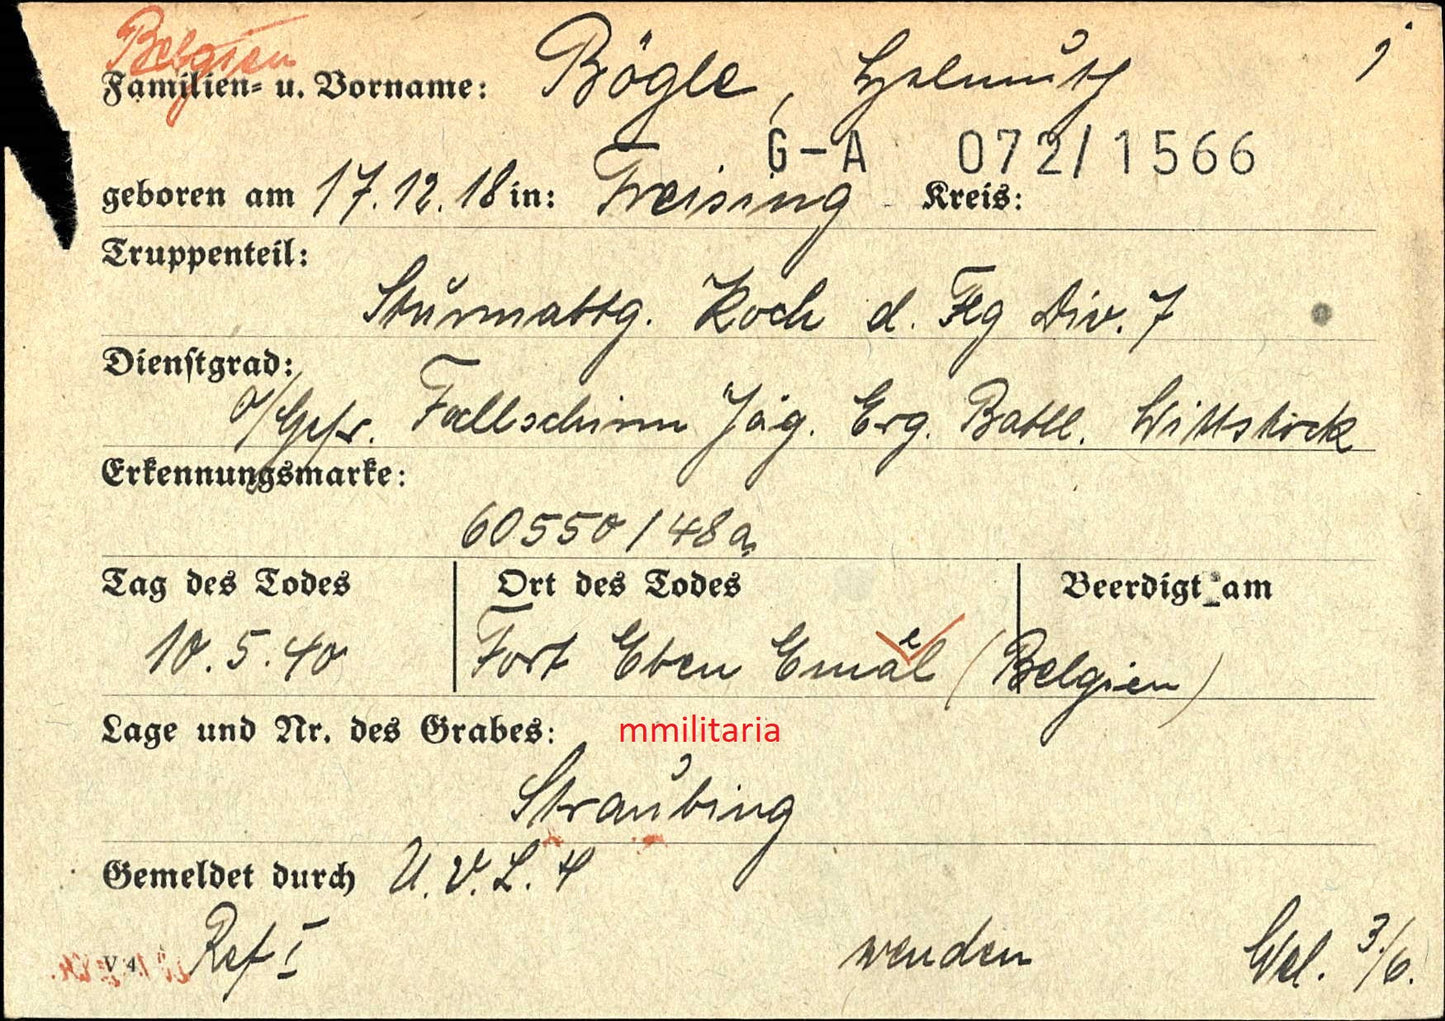 Belgien
Familien- u. Vorname: Bögle, Helmuth
G-A 072/1566
geboren am 17.12.18 in: Freising Kreis:
Truppenteil:
Sturmabtg. Koch d. Flg Div. 7
Dienstgrad:
O/Gefr. Fallschirm Jäg. Erg. Batl. Wittstock
Erkennungsmarke:
60550/48a
Tag des Todes Ort des Todes Beerdigt am
10.5.40 Fort Eben Emael (Belgien)
Lage und Nr. des Grabes: mmilitaria
Straubing
Gemeldet durch U.V.L. 4
V 4 Ref I wenden 3/6.